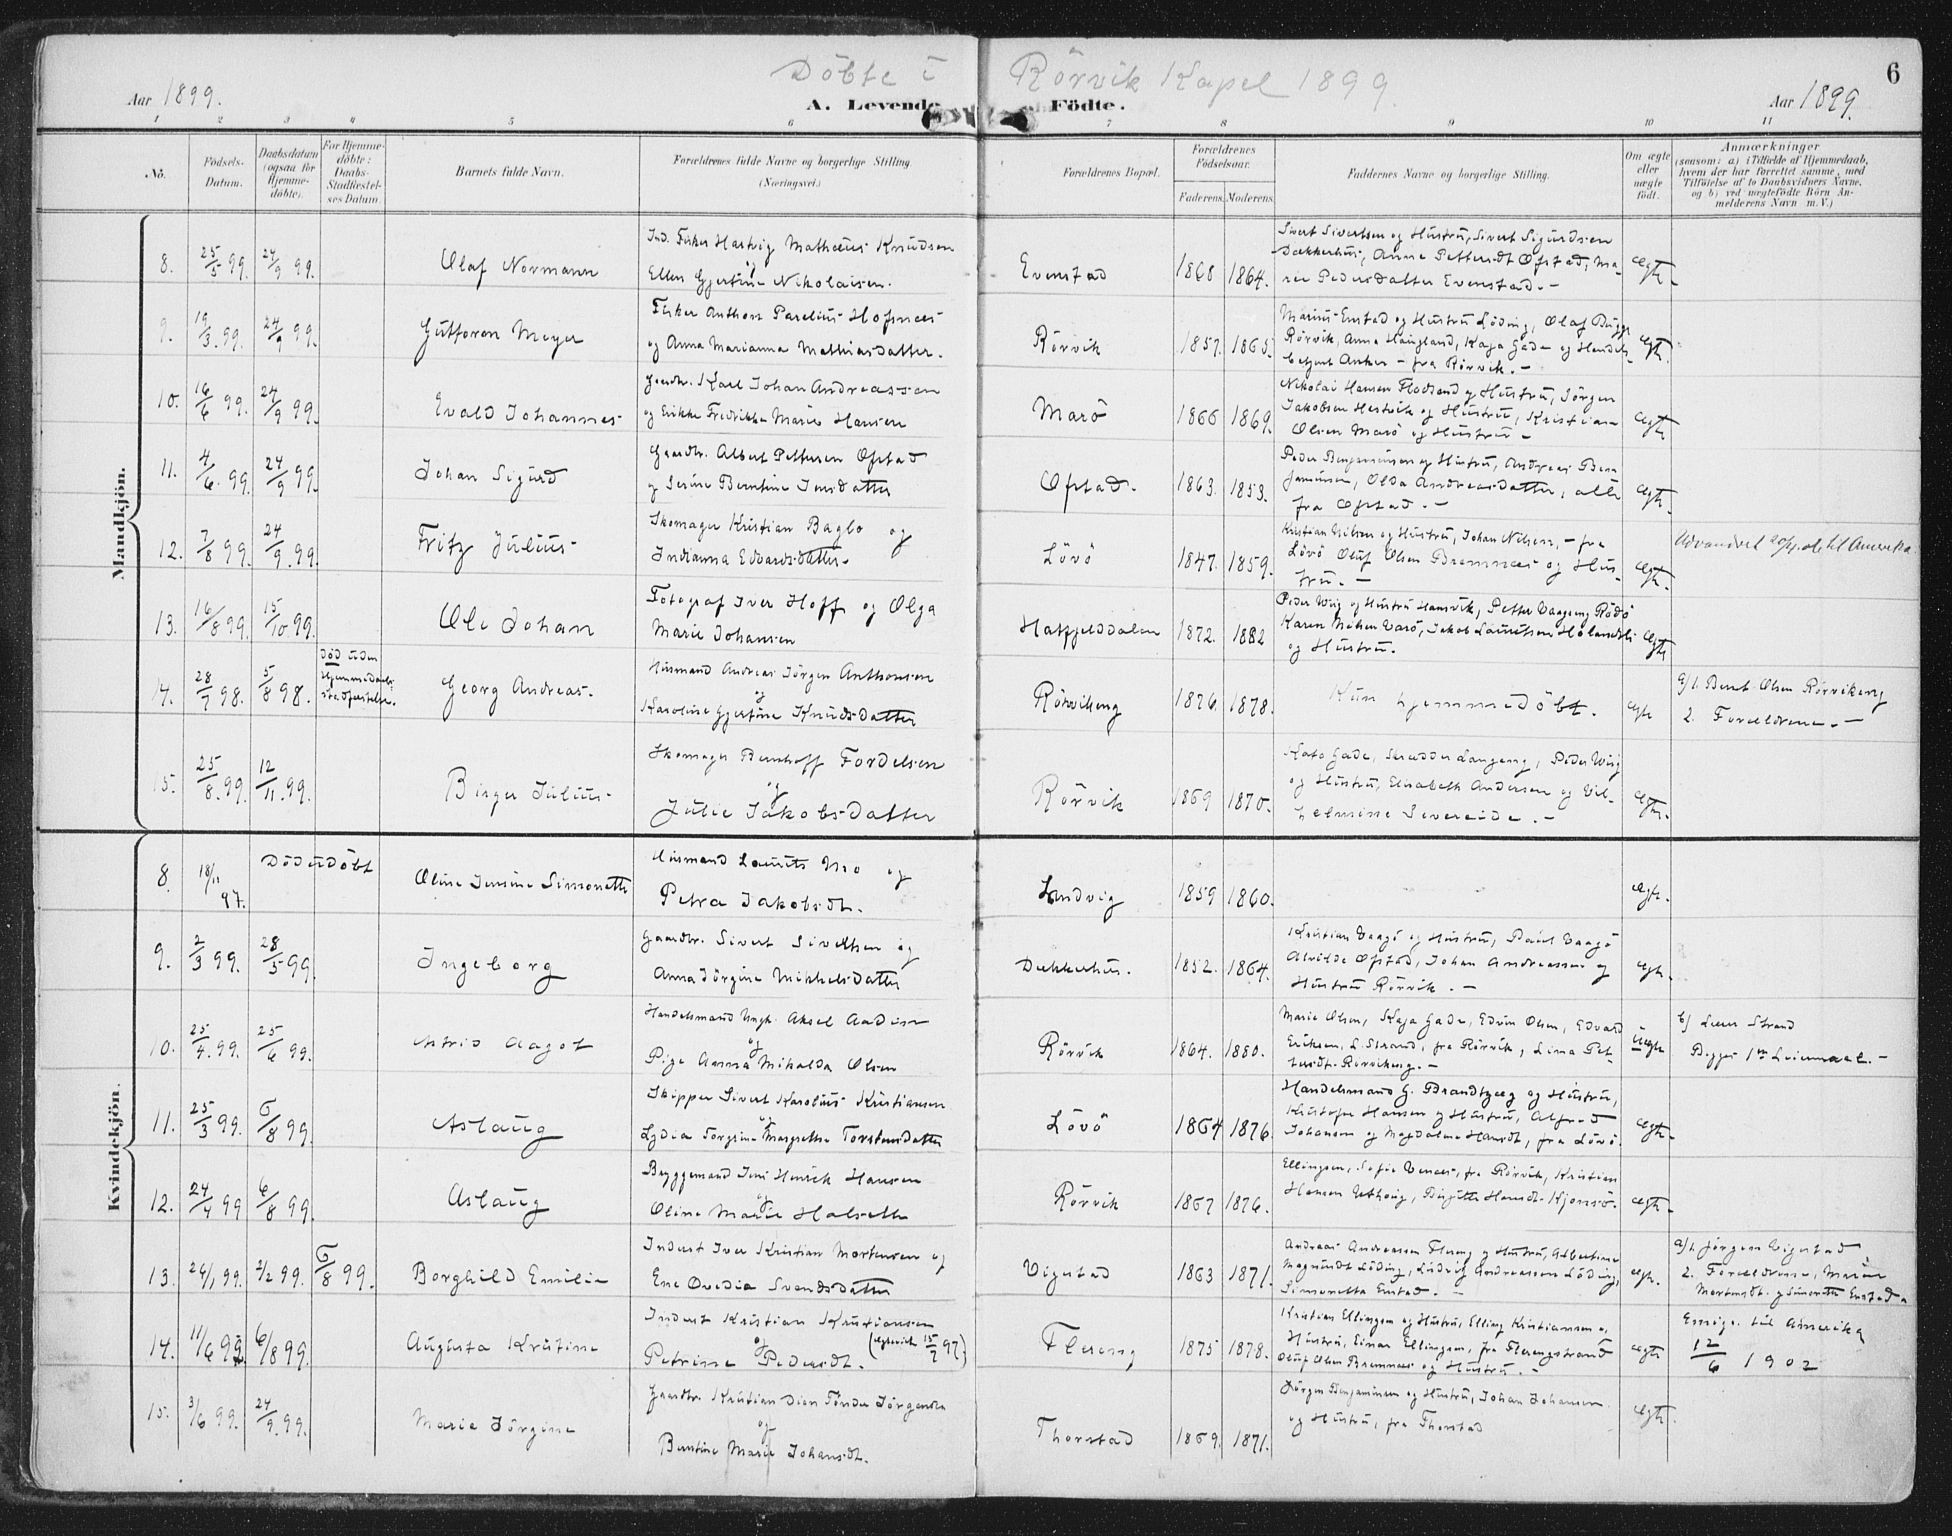 Döbte i Rörvik Kapel 1899
Aar 1899.
A. Levende Födte.
Aar 1899.
6
1 2 3 4 5 6 7 8 9 10 11
No.
Födsels-Datum.
Daabsdatum (ogsaa for Hjemmedöbte).
For Hjemmedöbte: Daabs-Stadfæstelses Datum
Barnets fulde Navn.
Forældrenes fulde Navne og borgerlige Stilling (Næringsvei.)
Forældrenes Bopæl.
Forældrenes Födselsaar.
Faderens. Moderens.
Faddernes Navne og borgerlige Stilling.
Om ægte eller uægte födt.
Anmærkninger
(saasom: a) i Tilfælde af Hjemmedaab, hvem der har forrettet samme, med Tilföielse af to Daabsvidners Navne, og b) ved uægtefödte Börn Anmelderens Navn m. V.)
Mandkjön.
8. 25/5 99. 24/9 99. Olaf Normann
Ind. Fisker Hartvig Mathæus Knudsen
og
Ellen Gjertine Nikolaisen.
Evenstad 1868 1864.
Sivert Sivertsen og Hustru, Sivert Sigurdsen
Dækkerhus, Anne Pettersdt Ofstad, Ma-
rie Pedersdatter Evenstad. -
ægte.
9. 19/3 99. 24/9 99. Guttorm Meyer
Fisker Anthon Parelius Hofnæs
og Anna Marianna Mathiasdatter.
Rörvik 1857. 1865.
Marius Enstad og Hustru Löding, Olaf Bügge
Rörvik, Anna Haugland, Kaja Gade og Handels-
betjent Anker - fra Rörvik. -
ægte.
10. 16/6 99. 24/9 99. Evald Johannes
Gaardbr. Karl Johan Andreassen
og Erikke Fredrikke Marie Hansen
Marö 1866 1869.
Nikolai Hansen Flosand og Hustru, Jörgen
Jakobsen Hestvik og Hustru, Kristian
Olsen Marö og Hustru -
ægte
11. 4/6 99. 24/9 99. Johan Sigurd
Gaardbr. Albert Pettersen Ofstad
og Serine Berntine Jensdatter
Ofstad. 1863. 1853.
Peder Benjaminsen og Hustru, Andreas Ben-
jaminsen, Olda Andreasdatter, alle
fra Ofstad. -
ægte.
12. 7/8 99. 24/9 99. Fritz Julius
Skomager Kristian Baglo og
Indianna Edvardsdatter.
Lövö 1847. 1859.
Kristian Nilsen og Hustru, Johan Nilsen, - fra
Lövö Oluf Olsen Bremnæs og Hus-
tru. -
ægte.
Udvandret til Amerika
13. 16/8 99. 15/10 99. Ole Johan
Fotograf Iver Hoff og Olga
Marie Johansen
Hatfjelddalen 1872. 1882
Peder Wiig og Hustru Hansvik, Petter Vaagseng Rödö
Karen Vaarö, Jakob Lauritsen
og Hustru.
ægte
14. 28/7 98. 5/8 98. Död uden
Hjemmedaabs
stadfæstelse.
Georg Andreas.
Husmand Andreas Jörgen Anthonsen
og
Karoline Gjertine Knudsdatter
Rörvikeng 1876 1878.
Kun hjemmedöbt.
ægte
a/1. Bernt Olsen Rörvikeng
2. Forældrene. -
15. 25/8 99. 12/11 99. Birger Julius
Skomager Bernhoff Fordelsen
og
Julie Jakobsdatter
Rörvik 1869 1870.
Kato Gade, Skrædder Langeng, Peder Wiig
og Hustru, Elisabeth Andersen og Vil-
helmine Severeide. -
ægte.
Kvindekjön.
8. 18/11 97. Död udöbt
Oline Jensine Simonette
Husmand Laurits Mo og
Petra Jakobsdt.
Landvig 1859 1860.
ægte.
9. 2/3 99. 28/5 99. Ingeborg
Gaardbr. Sivert Sivertsen og
Anna Jörgine Mikkelsdatter
Dækkerhus. 1852. 1864.
Kristian Vaagö og Hustru, Paul Vaagö
Alvilde Ofstad, Johan Andreassen og
Hustru Rörvik. -
ægte.
10. 25/4 99. 25/6 99. Astrid Aagot
Handelsmand Ungk. Aksel
og
Pige Anna Mikalda Olsen
Rörvik 1864. 1880.
Marie Olsen, Kaja Gade, Edvin Olsen, Edvard
Eriksen, L. Strand, fra Rörvik, Lina Pet-
tersdt. Rörvikeng. -
uægte
b/ Strand
Begges 1ste Leiermaal. -
11. 25/3 99. 6/8 99. Aslaug
Skipper Sivert Karolius Kristiansen
og
Lydia Torgine Margrethe Torstensdatter
Lövö 1864 1876.
Handelsmand G. Brandtzæg og Hustru,
Kristofer Hansen og Hustru, Alfred
Johansen og Magdalene Hansdt, fra Lövö.
ægte.
12. 24/4 99 6/8 99. Aslaug
Bryggemand Jens Henrik Hansen
og
Oline Marie Halseth
Rörvik 1867 1876.
Ellingsen, Sofie, fra Rörvik, Kristian
Hansen, Birgitte Hansdt.
ægte.
13. 24/1 99. 2/2 99. 6/8 99. Borghild Emilie
Inderst Iver Kristian Mortensen og
Ene Ovedia Svendsdatter
Vigstad 1863 1871.
Andreas Andreassen Flereng og Hustru, Albertine
Magnusdt Löding, Ludvig Andreassen Löding,
Simonetta Enstad. -
ægte.
a/1. Jörgen Vigestad
2. Forældrene, Marie
Mortensdt. og Simonette Enstad.
14. 11/6 99 6/8 99. Augusta Kristine
Inderst Kristian Kristiansen
og
Petrine Pedersdt. (ægteviet 15/7 97.)
Flereng 1875 1878.
Kristian Ellingsen og Hustru, Elling Kristiansen og
Hustru, Einar Ellingsen, fra Flerengstrand
Oluf Olsen Bremnæs og Hustru. -
ægte
Emigr. til Amerika
12/6 1902
15. 3/6 99. 24/9 99. Marie Jörgine
Gaardbr. Kristian Dien Tönder Jörgensen
og
Berntine Marie Johansdt.
Thorstad 1869. 1871.
Jörgen Benjaminsen og Hustru, Johan Johansen
og Hustru, fra Thorstad
ægte.